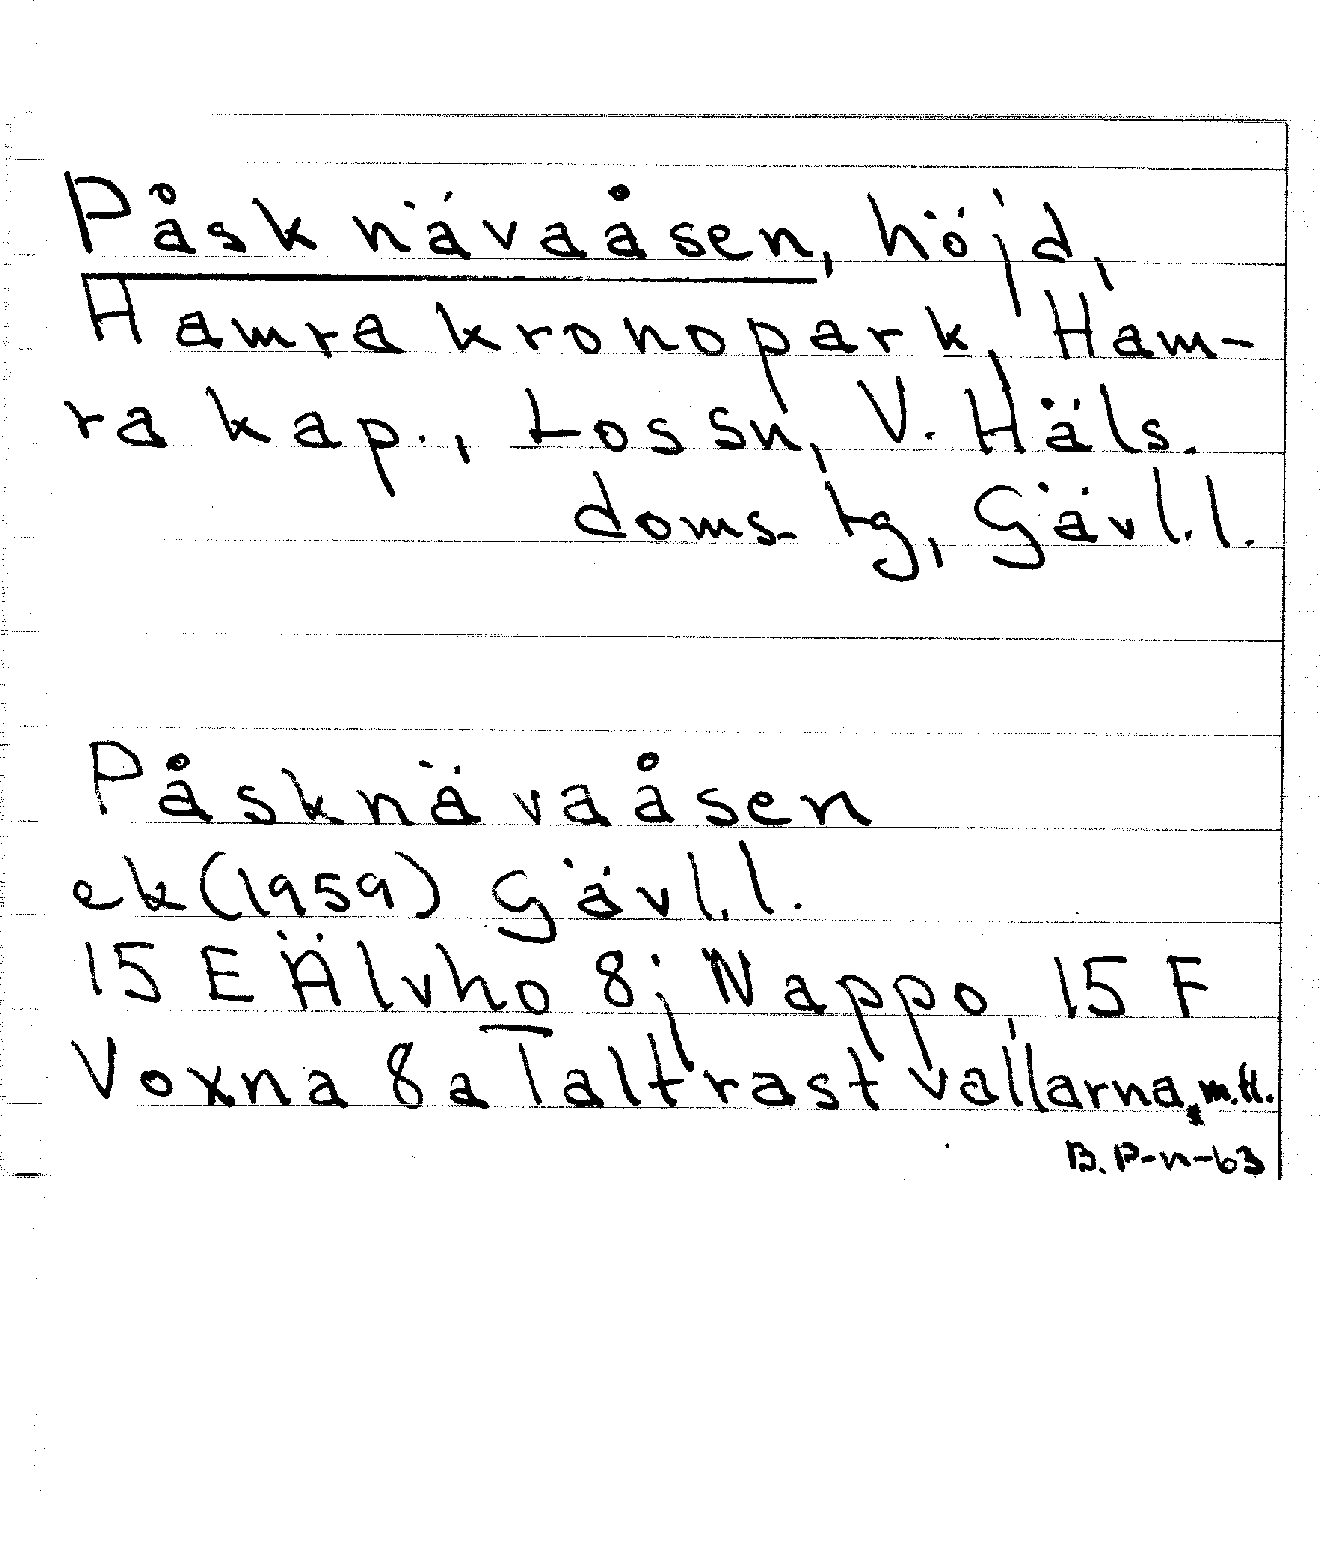 Påsknävaåsen, höjd,
Hamra kronopark, Ham-
ra kap., Lossn, V. Häls.
doms. tg, Gävl. l.
Påsknävaåsen
ek (1959) Gävl. l.
15 E Älvho 8j Nappo, 15 F
Voxna 8a Taltrastvallarna, m.fl.
B. P-n-63